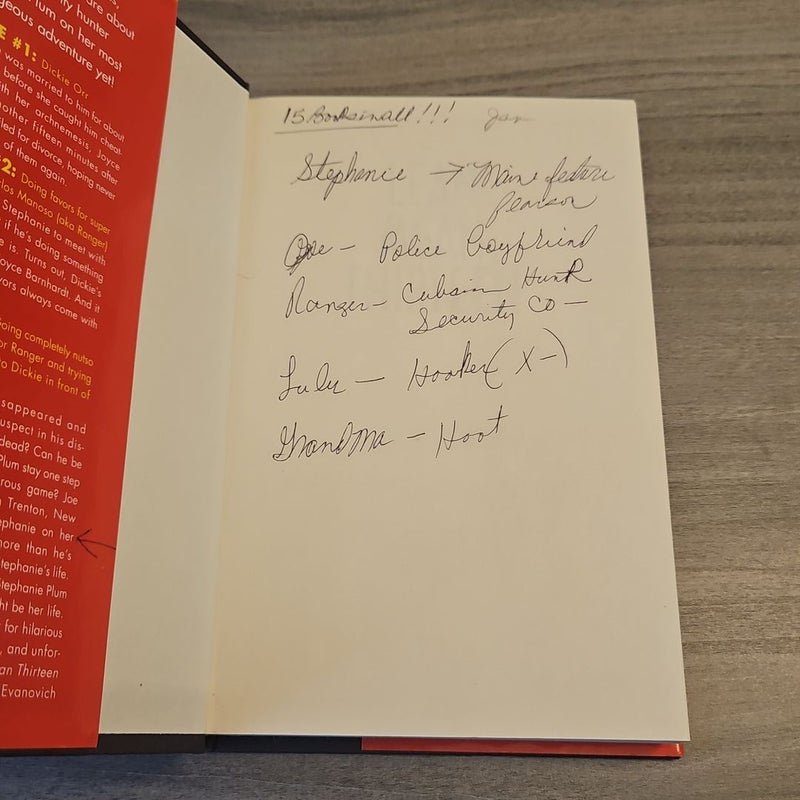 are about
y hunter
Plum on her most
geous adventure yet!
E #1: Dickie Orr
was married to him for about
before she caught him cheat
th her archnemesis, Joyce
nother fifteen minutes after
led for divorce, hoping never
of them again.
2: Doing favors for super
rlos Manoso (aka Ranger)
Stephanie to meet with
if he's doing something
e is. Turns out, Dickie's
oyce Barnhardt. And it
vors always come with
Going completely nutso
or Ranger and trying
to Dickie in front of
sappeared and
uspect in his dis-
dead? Can he be
Plum stay one step
rous game? Joe
n Trenton, New
ephanie on her
more than he's
Stephanie's life.
Stephanie Plum
ht be her life.
for hilarious
, and unfor-
an Thirteen
Evanovich
15 Books in all!!! Jan
Stephanie → Main feature
pearson
Joe – Police boyfriend
Ranger – Cubain Hunk
Security Co –
Lulu – Hooker (X–)
Grandma – Hoot